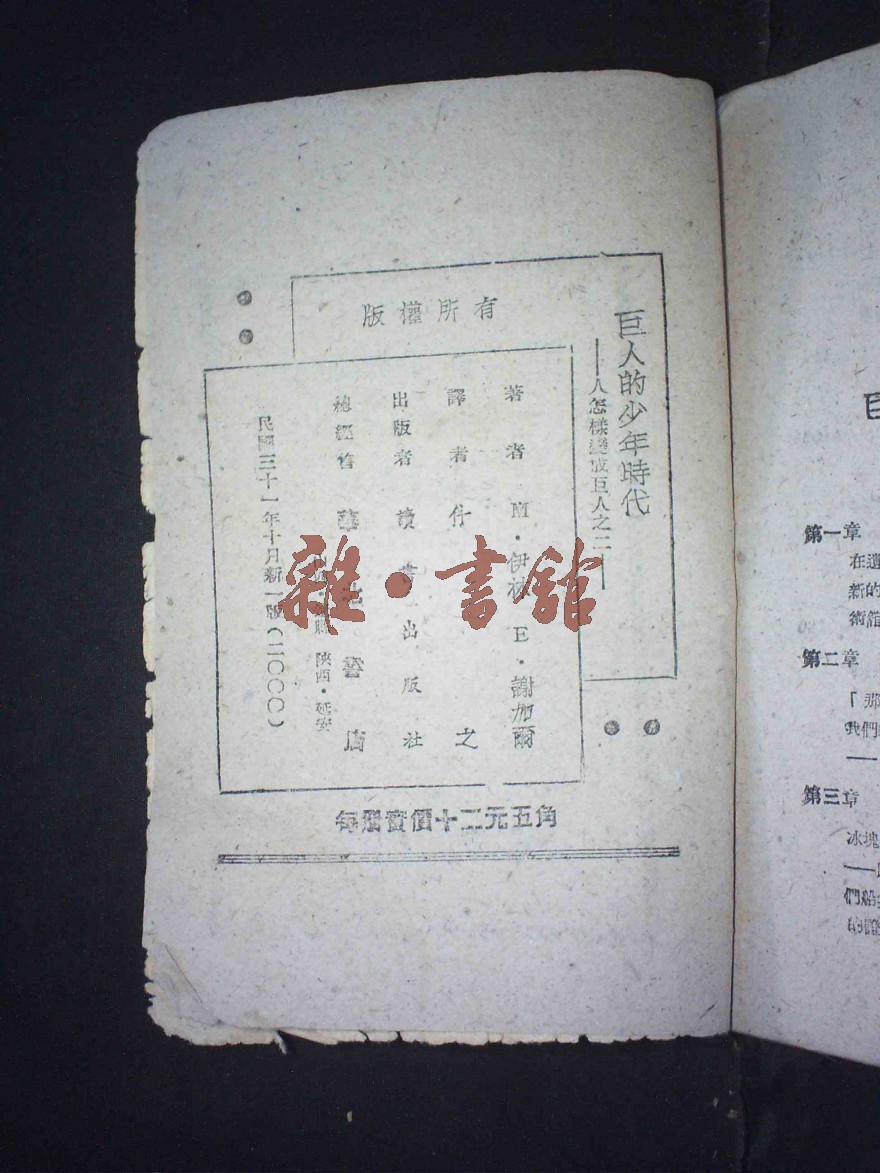 巨人的少年時代
——人怎樣變成巨人之二——
版權所有
著者 M·伊林 E·謝加爾
譯者 什之
出版者 讀書出版社
總經售 華北書店
陝西·延安
民國三十一年十月新一版(二〇〇〇)
每册實價十二元五角
雜·書館
第一章
新的
術館
第二章
「那
我們
——
第三章
冰塊
們船